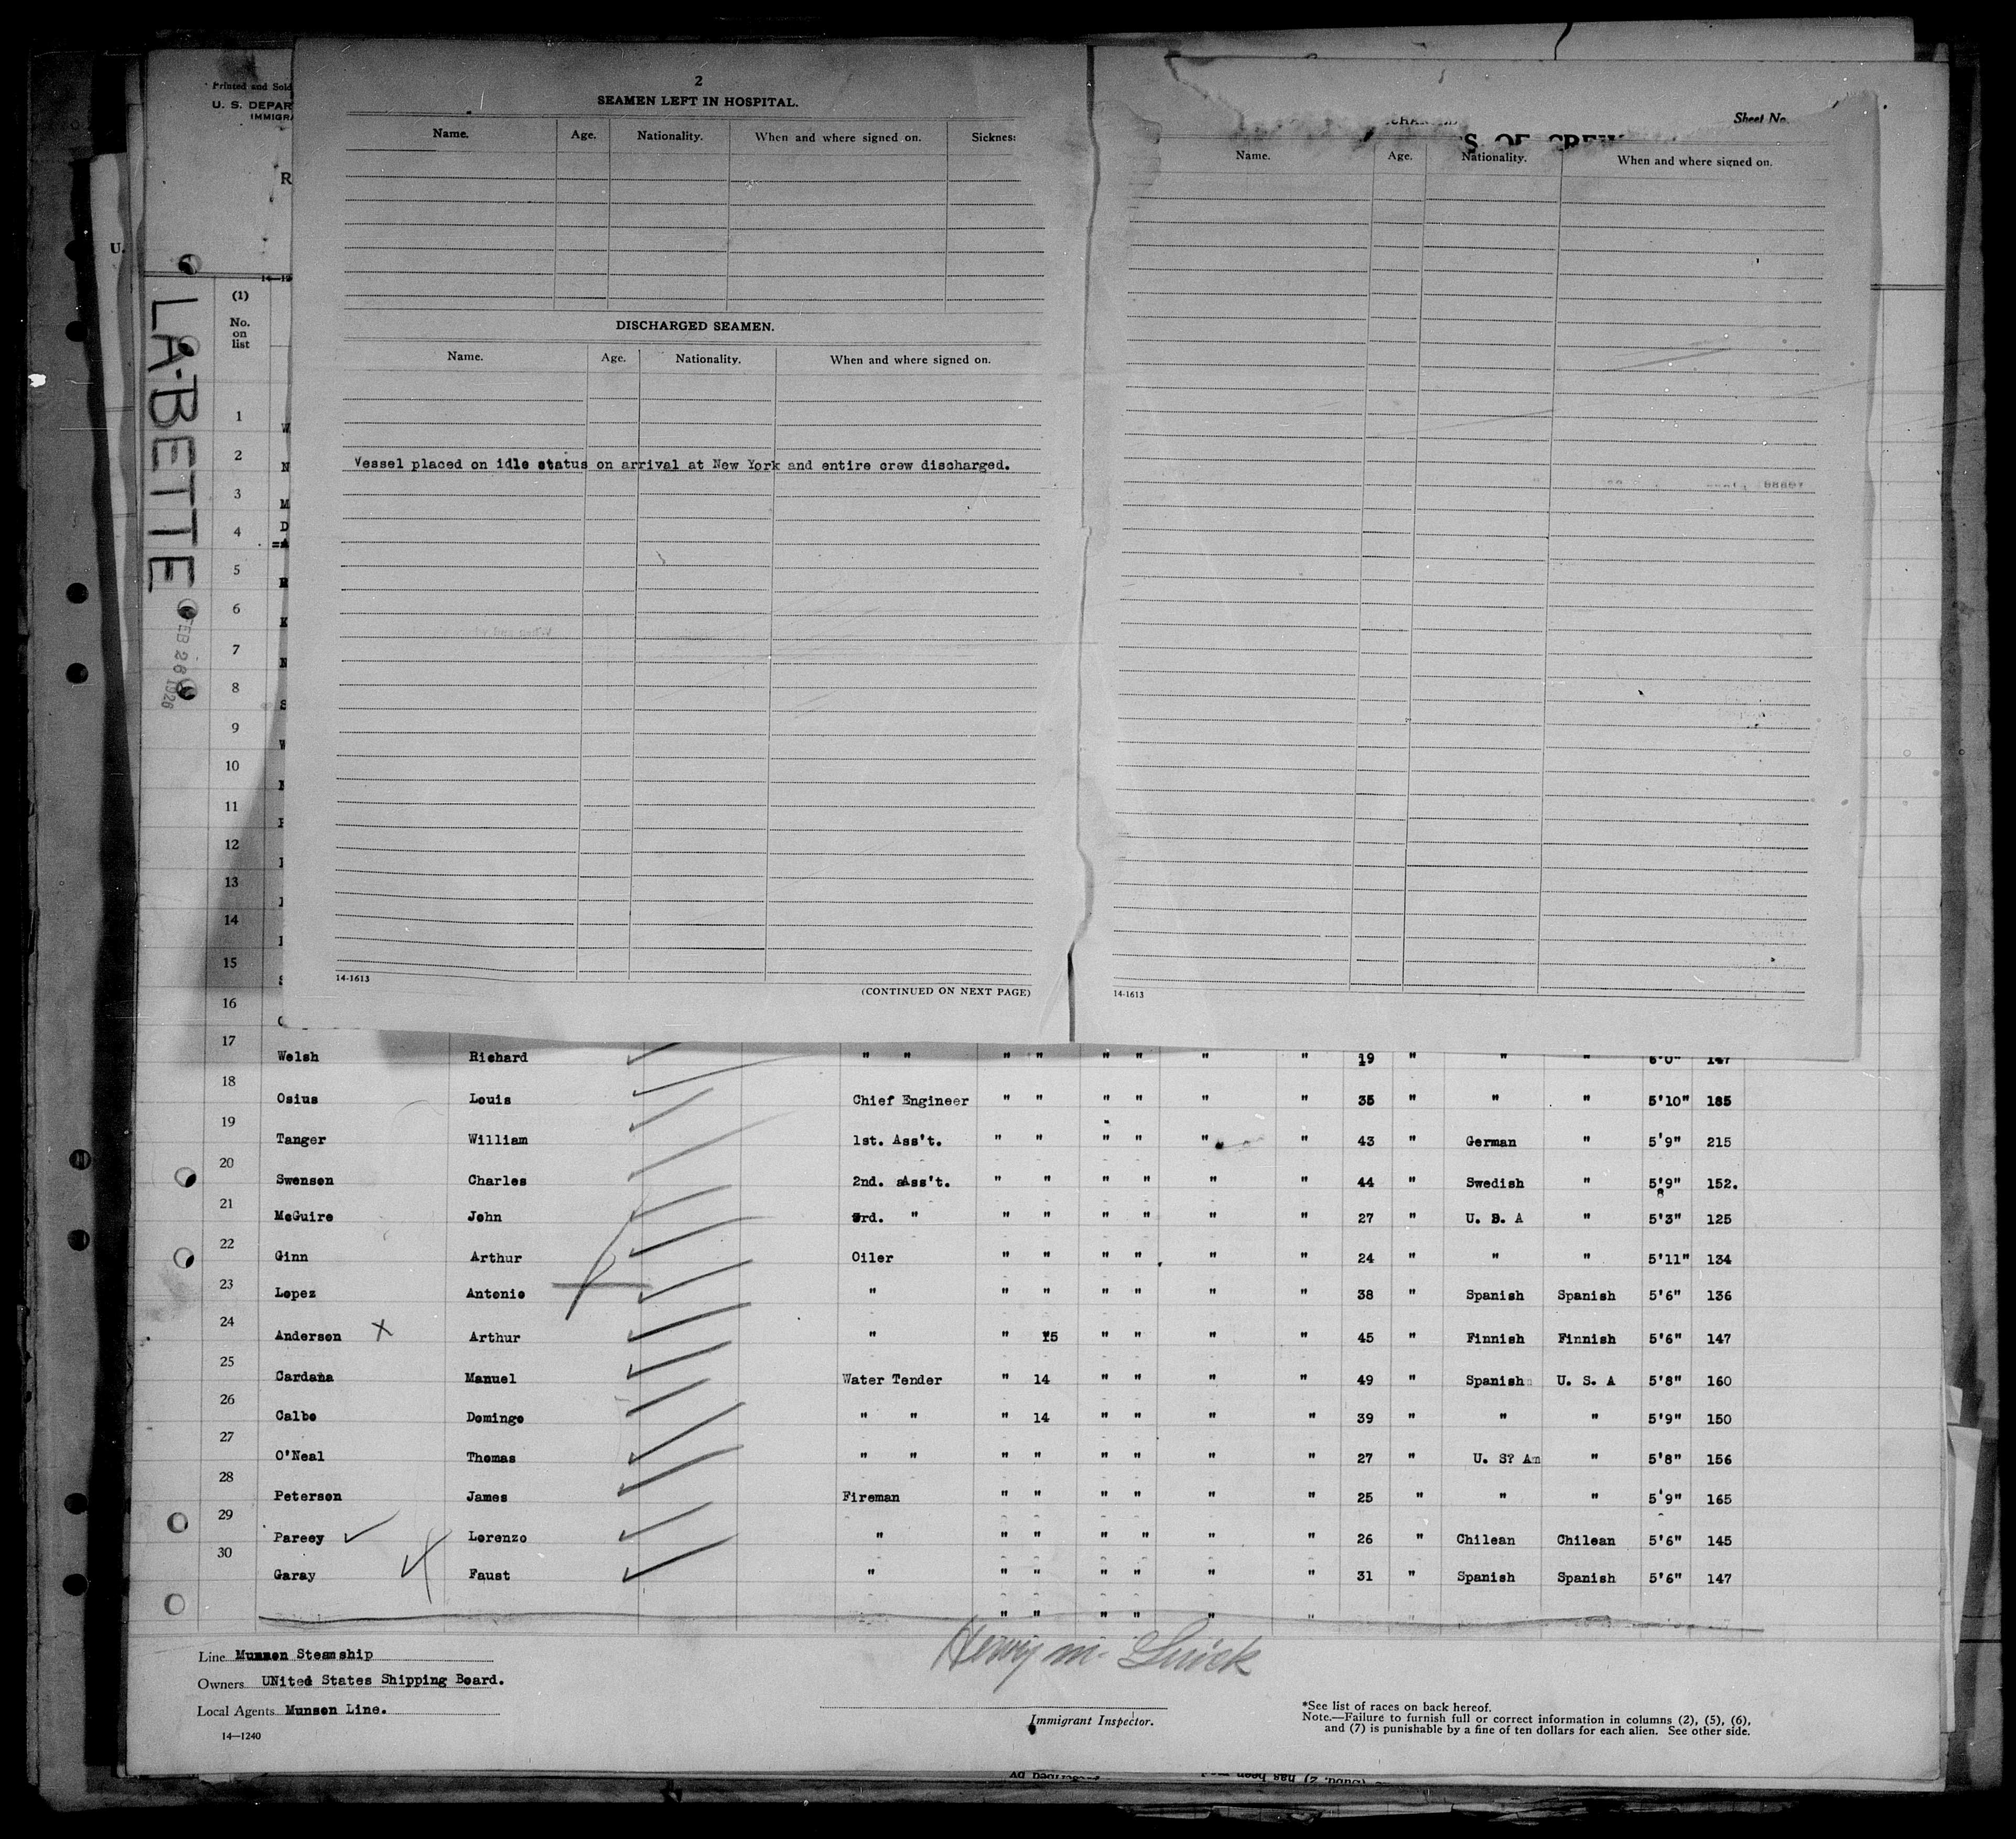 Printed and Sold
U. S. DEPAR
IMMIGRA
R
U.
LA-BETTE
FEB 26 1926
(1)
No.
on
list
1
2
3
4
5
6
7
8
9
10
11
12
13
14
15
16
2
SEAMEN LEFT IN HOSPITAL.
Name. Age. Nationality. When and where signed on. Sicknes
DISCHARGED SEAMEN.
Name. Age. Nationality. When and where signed on.
Vessel placed on idle status on arrival at New York and entire crew discharged.
14-1613
(CONTINUED ON NEXT PAGE)
Sheet No.
S OF CREW
Name. Age. Nationality. When and where signed on.
14-1613
17 Welsh Richard " " " " " " " " 19 " " " 6'0" 147
18 Osius Louis Chief Engineer " " " " " " 35 " " " 5'10" 185
19 Tanger William 1st. Ass't. " " " " " " 43 " German " 5'9" 215
20 Swensen Charles 2nd. aAss't. " " " " " " 44 " Swedish " 5'9" 152.
21 McGuire John 3rd. " " " " " " " 27 " U. S. A " 5'3" 125
22 Ginn Arthur Oiler " " " " " " 24 " " " 5'11" 134
23 Lopez Antonio " " " " " " " 38 " Spanish Spanish 5'6" 136
24 Anderson X Arthur " " 15 " " " " 45 " Finnish Finnish 5'6" 147
25 Cardana Manuel Water Tender " 14 " " " " 49 " Spanish U. S. A 5'8" 160
26 Calbo Domingo " " " 14 " " " " 39 " " " 5'9" 150
27 O'Neal Thomas " " " " " " " " 27 " U. S? Am " 5'8" 156
28 Peterson James Fireman " " " " " " 25 " " " 5'9" 165
29 Pareey Lorenzo " " " " " " " 26 " Chilean Chilean 5'6" 145
30 Garay Faust " " " " " " " 31 " Spanish Spanish 5'6" 147
" " " " " "
Line Munson Steamship
Owners UNited States Shipping Board.
Local Agents Munson Line.
14—1240
Henry M.
Immigrant Inspector.
*See list of races on back hereof.
Note.—Failure to furnish full or correct information in columns (2), (5), (6),
and (7) is punishable by a fine of ten dollars for each alien. See other side.